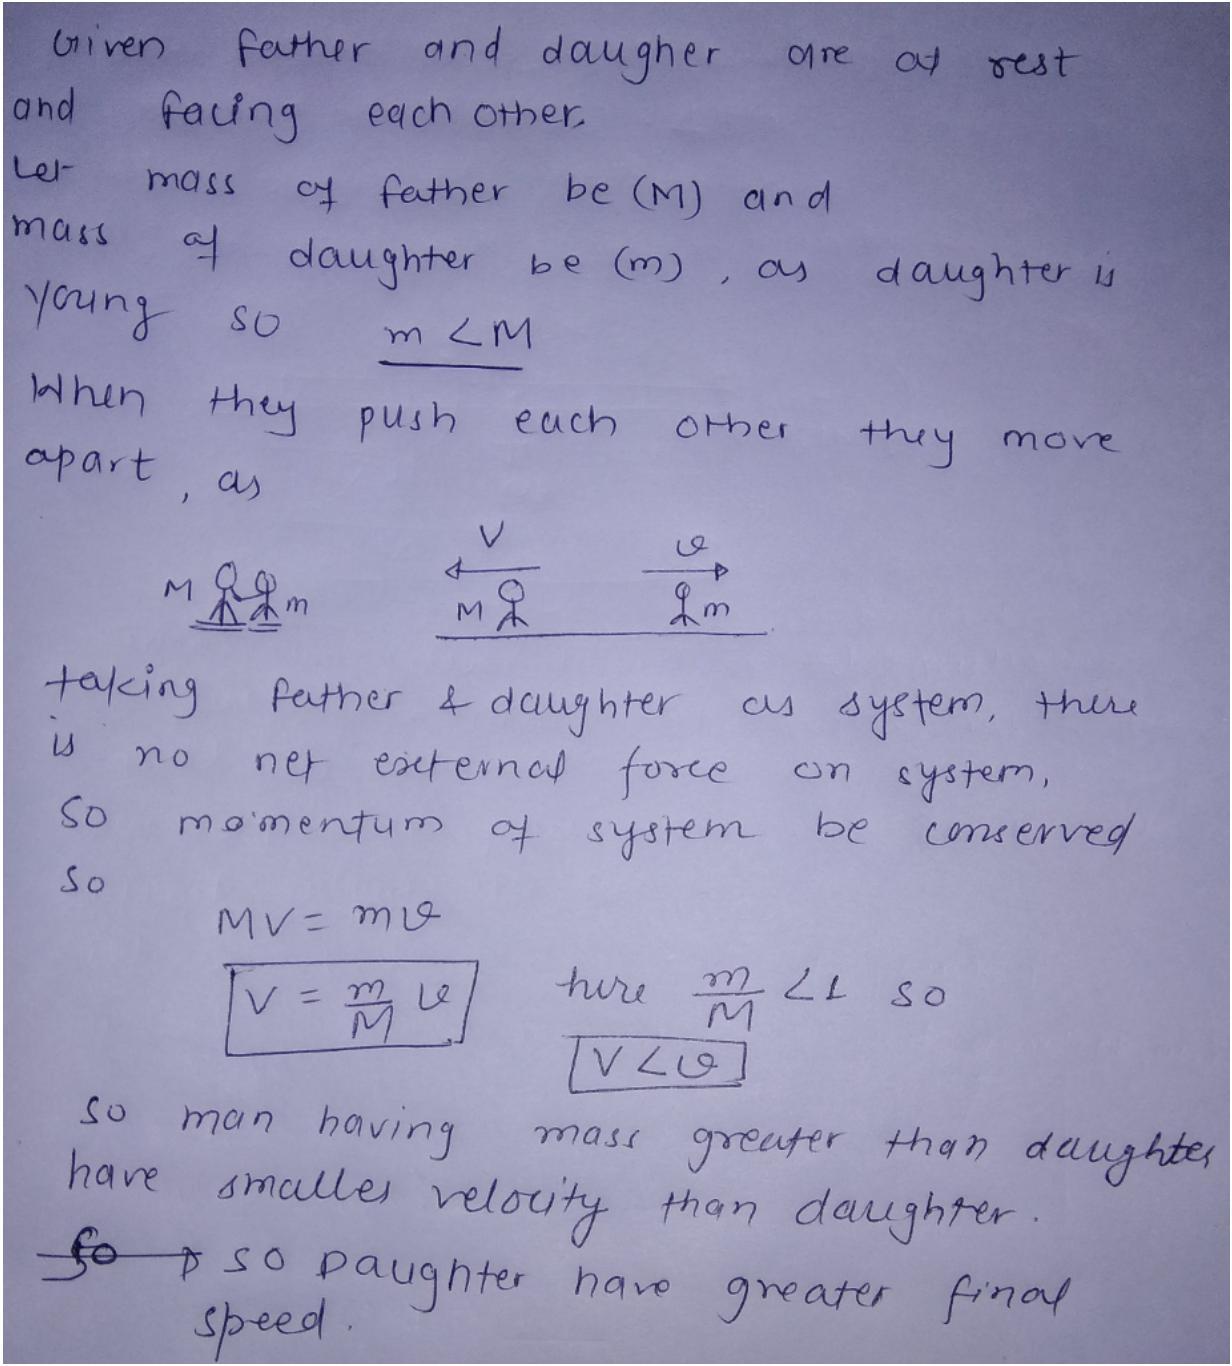 Given father and daugher are at rest
and facing each other.
Let mass of father be (M) and
mass of daughter be (m), as daughter is
young so m < M
When they push each other they move
apart, as
V v
M m M m
taking father & daughter as system, there
is no net external force on system,
so momentum of system be conserved
so
MV = mv
V = m/M v here m/M < 1 so
V < v
so man having mass greater than daughter
have smaller velocity than daughter.
so so Daughter have greater final
speed.